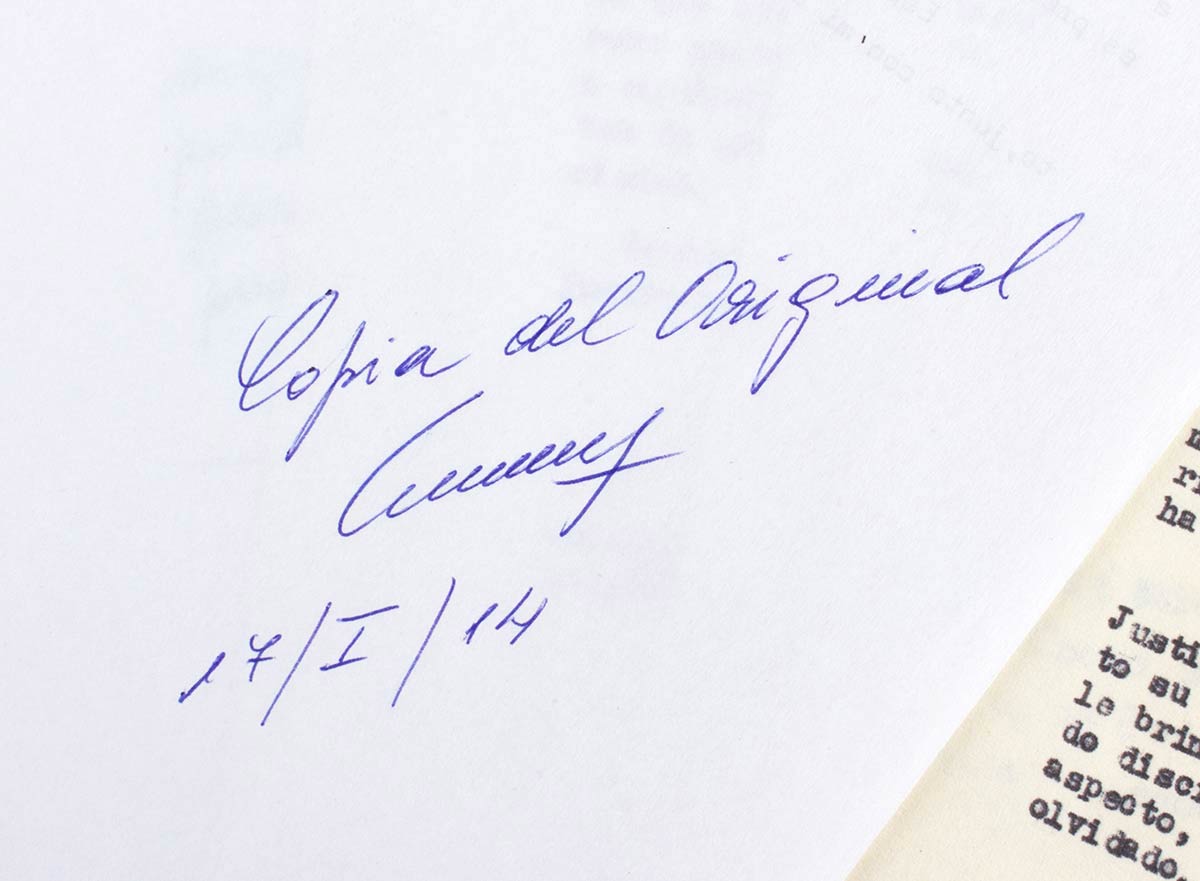 Copia del Original
17/I/14
ha
Justi
to su
le brin
de disc
aspecto,
olvidado.